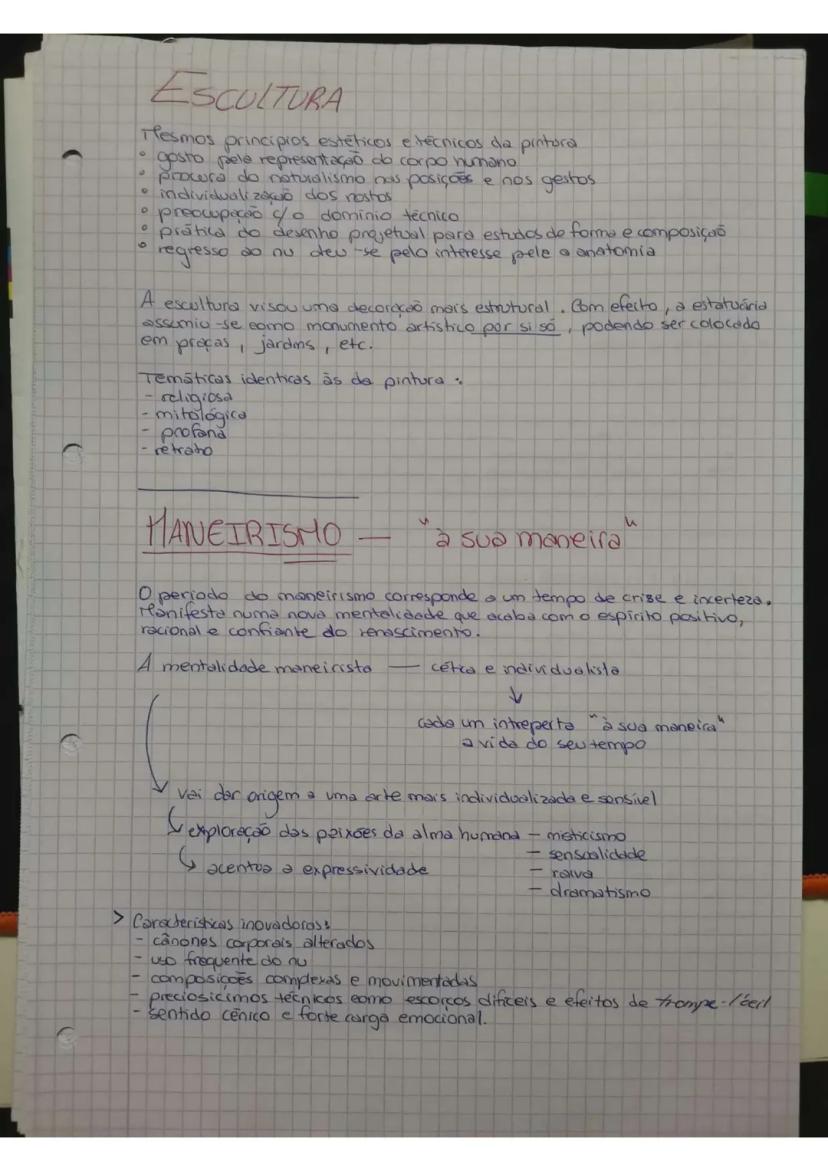 ESCULTURA
Mesmos princípios estéticos e técnicos da pintura
• gosto pela representação do corpo humano
• procura do naturalismo nas posições e nos gestos
• individualização dos rostos
• preocupação c/o domínio técnico
• prática do desenho projetual para estudos de forma e composição
• regresso ao nu deu-se pelo interesse pele a anatomia
A escultura visou uma decoração mais estrutural. Com efeito, a estatuária
assumiu-se como monumento artístico por si só, podendo ser colocado
em praças, jardins, etc.
Temáticas identicas às da pintura:
- religiosa
- mitológica
- profana
- retrato
MANEIRISMO — "à sua maneira"
O período do maneirismo corresponde a um tempo de crise e incerteza.
Manifesta numa nova mentalidade que acaba com o espírito positivo,
racional e confiante do renascimento.
A mentalidade maneirista — cética e individualista
cada um intreperta "à sua maneira"
a vida do seu tempo
vai dar origem a uma arte mais individualizada e sensível
exploração das paixões da alma humana - misticismo
- sensualidade
acentua a expressividade
- raiva
- dramatismo
> Características inovadoras:
- cânones corporais alterados
- uso frequente do nu
- composições complexas e movimentadas
- preciosicimos técnicos como escorços difíceis e efeitos de trompe-l'œil
- sentido cénico e forte carga emocional.